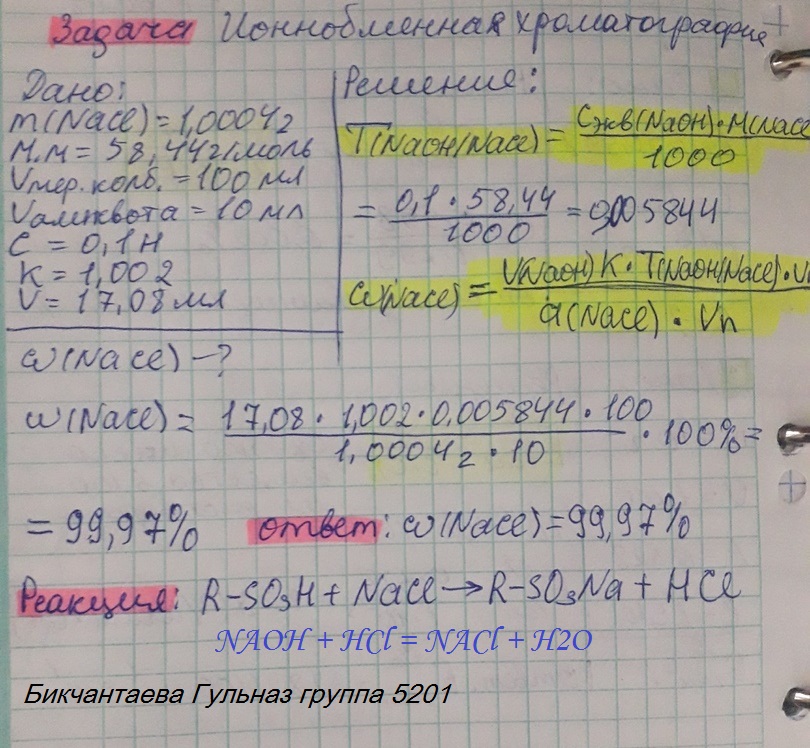 Задача Ионнобменная хроматография
Дано:
m(NaCl) = 1,0004 г
М.м = 58,44 г/моль
Vмер.колб. = 100 мл
Vаликвота = 10 мл
C = 0,1 н
K = 1,002
V = 17,08 мл
ω(NaCl) – ?
Решение:
T(NaOH/NaCl) = Cэкв(NaOH)·M(NaCl
1000
= 0,1 · 58,44
1000
= 0,005844
ω(NaCl) = V(NaOH) K · T(NaOH/NaCl) · V
a(NaCl) · Vп
ω(NaCl) = 17,08 · 1,002 · 0,005844 · 100
1,0004 г · 10
· 100% =
= 99,97% ответ: ω(NaCl) = 99,97%
Реакция: R-SO3H + NaCl → R-SO3Na + HCl
NAOH + HCl = NACl + H2O
Бикчантаева Гульназ группа 5201